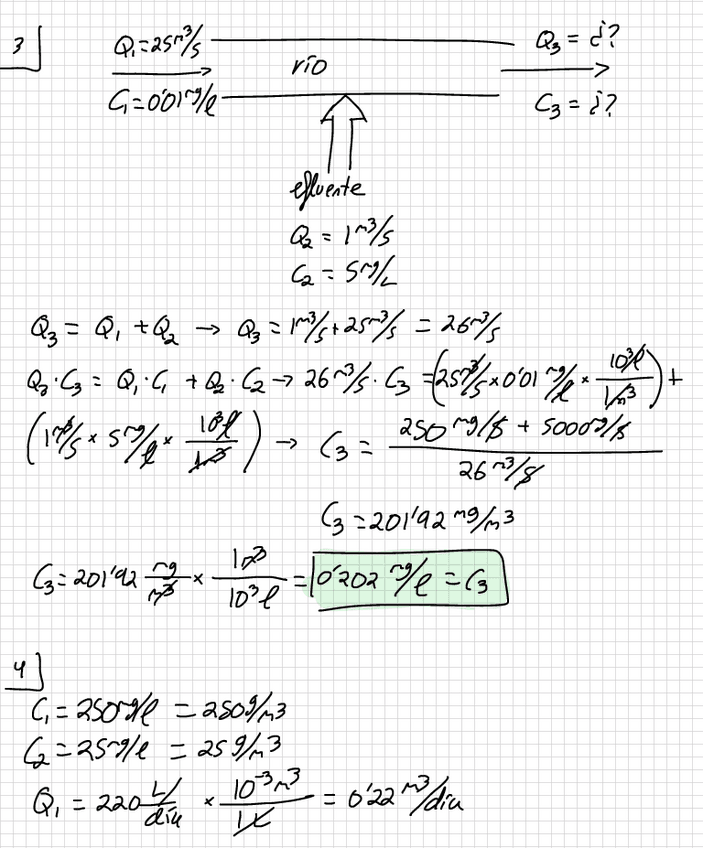 3
Q₁ = 25 m³/s
C₁ = 0'01 mg/l
río
Q₃ = ¿?
C₃ = ¿?
efluente
Q₂ = 1 m³/s
C₂ = 5 mg/L
Q₃ = Q₁ + Q₂ → Q₃ = 1 m³/s + 25 m³/s = 26 m³/s
Q₃ · C₃ = Q₁ · C₁ + Q₂ · C₂ → 26 m³/s · C₃ = (25 m³/s × 0'01 mg/l × 10³ l / 1 m³) +
(1 m³/s × 5 mg/l × 10³ l / 1 m³) → C₃ = 250 mg/s + 5000 mg/s / 26 m³/s
C₃ = 201'92 mg/m³
C₃ = 201'92 mg/m³ × 1 m³ / 10³ l = 0'202 mg/l = C₃
4
C₁ = 250 mg/l = 250 g/m³
C₂ = 25 mg/l = 25 g/m³
Q₁ = 220 L/día × 10⁻³ m³ / 1 L = 0'22 m³/día